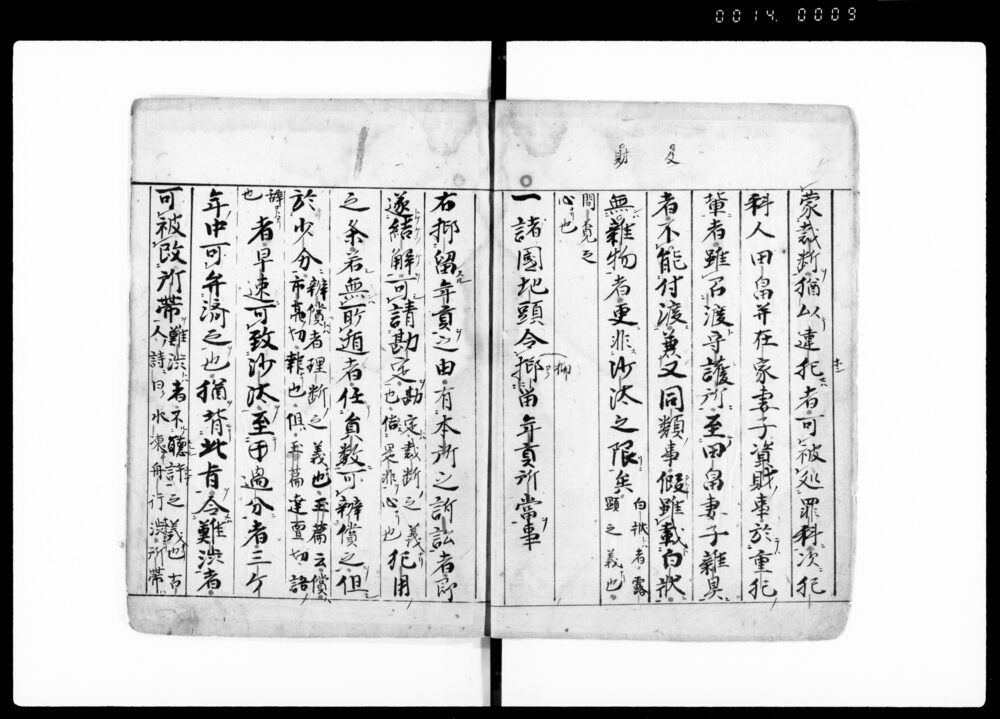 0014.0009
蒙裁断猶以違犯者可被処罪科次犯
科人田畠并在家妻子資財事於重犯
輩者雖召渡守護所至田畠妻子雑具
者不能付渡兼又同類事仮雖載白状
無雑物者更非沙汰之限矣 白状者露顕之義也
問
心也
一諸国地頭令抑留年貢所当事
右抑留年貢之由有本所之訴訟者即
遂結解可請勘定 勘定裁断之義也 犯用
之条若無所遁者任員数可弁償之但
於少分 弁償者理断之義也玉篇云償
也 者早速可致沙汰至于過分者三ケ
年中可弁済之也猶背此旨令難渋者
可被改所帯 難渋者不聴許之義也古人詩曰水凍舟行渋所帯
財